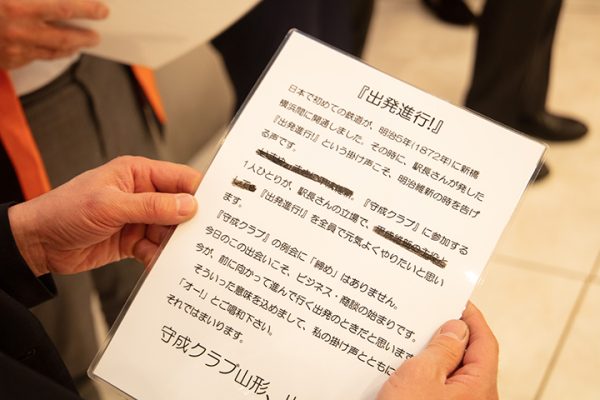 『出発進行!』
日本で初めての鉄道が、明治5年(1872年)に新橋
横浜間に開通しました。その時に、駅長さんが発した
『出発進行!』という掛け声こそ、明治維新の時を告げ
る声です。
『守成クラブ』に参加する
1人ひとりが、駅長さんの立場で、
『出発進行!』を全員で元気よくやりたいと思い
ます。
『守成クラブ』の例会に「締め」はありません。
今日のこの出会いこそ、ビジネス・商談の始まりです。
今が、前に向かって進んで行く出発のときだと思います
そういった意味を込めまして、私の掛け声とともに
「オー!」とご唱和下さい。
それではまいります。
守成クラブ山形、